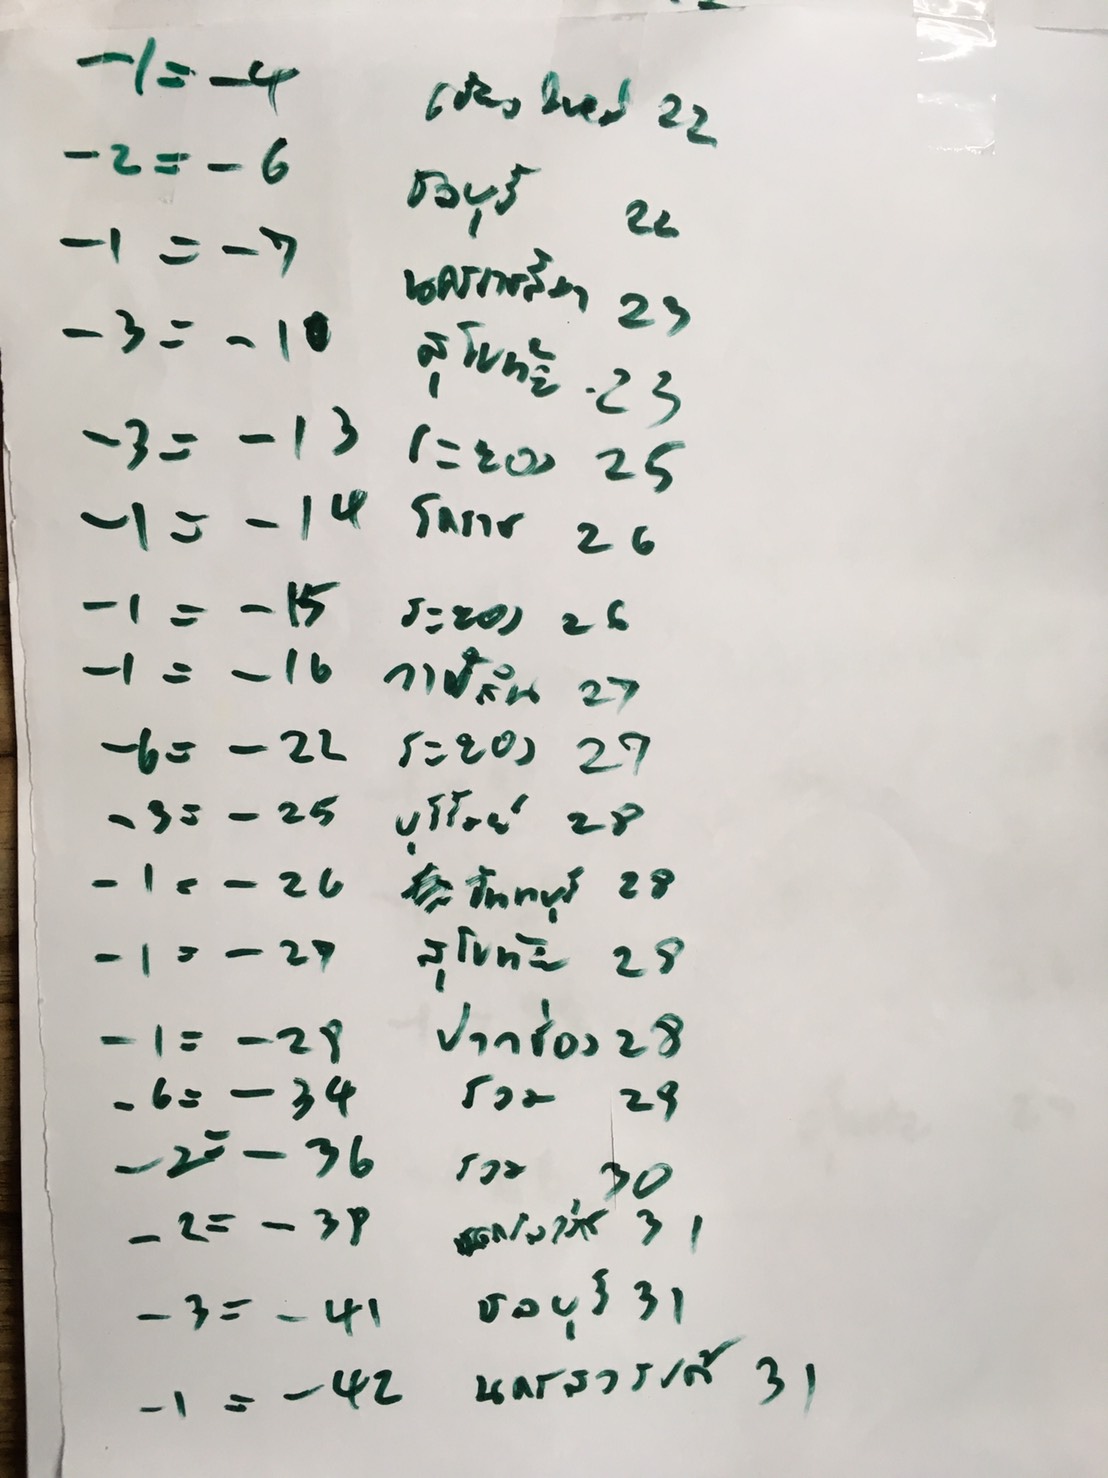 -1 = -4 เชียงใหม่ 22
-2 = -6 ชลบุรี 22
-1 = -7 นครราชสีมา 23
-3 = -10 สุโขทัย 23
-3 = -13 ระยอง 25
-1 = -14 โคราช 26
-1 = -15 ระยอง 26
-1 = -16 กาฬสินธุ์ 27
-6 = -22 ระยอง 27
-3 = -25 บุรีรัมย์ 28
-1 = -26 จันทบุรี 28
-1 = -27 สุโขทัย 28
-1 = -28 ปากช่อง 28
-6 = -34 รวม 29
-2 = -36 รวม 30
-2 = -38 31
-3 = -41 ชลบุรี 31
-1 = -42 นครสวรรค์ 31